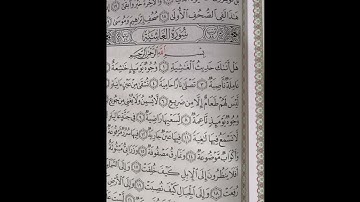 هَٰذَا لَفِى ٱلصُّحُفِ ٱلْأُولَىٰ ١٨ صُحُفِ إِبْرَٰهِيمَ وَمُوسَىٰ
سُورَةُ الغَاشِيَةِ
بِسْمِ ٱللَّهِ ٱلرَّحْمَٰنِ ٱلرَّحِيمِ
هَلْ أَتَىٰكَ حَدِيثُ ٱلْغَٰشِيَةِ ١ وُجُوهٌ يَوْمَئِذٍ خَٰشِعَةٌ ٢
نَّاصِبَةٌ ٣ تَصْلَىٰ نَارًا حَامِيَةً ٤
لَهُمْ طَعَامٌ إِلَّا مِن ضَرِيعٍ ٦ لَّا يُسْمِنُ وَلَا يُغْنِى مِن جُوعٍ
وُجُوهٌ يَوْمَئِذٍ نَّاعِمَةٌ ٨ لِّسَعْيِهَا رَاضِيَةٌ ٩ فِى جَنَّةٍ
لَّا تَسْمَعُ فِيهَا لَٰغِيَةً ١١ فِيهَا عَيْنٌ جَارِيَةٌ
وَأَكْوَابٌ مَّوْضُوعَةٌ ١٤ وَنَمَارِقُ مَصْفُوفَةٌ ١٥ وَزَرَابِىُّ مَبْثُوثَةٌ
أَفَلَا يَنظُرُونَ إِلَى ٱلْإِبِلِ كَيْفَ خُلِقَتْ ١٧ وَإِلَى ٱلسَّمَآءِ
رُفِعَتْ ١٨ وَإِلَى ٱلْجِبَالِ كَيْفَ نُصِبَتْ ١٩ وَإِلَى ٱلْأَرْضِ